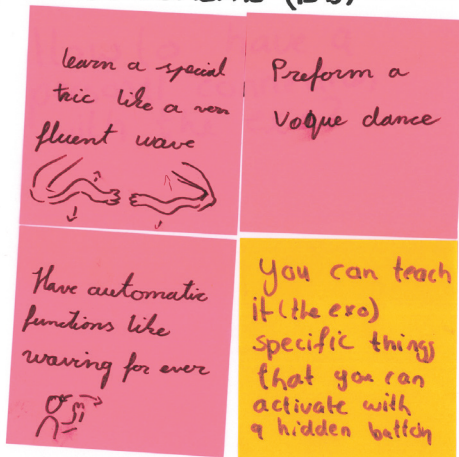 learn a special
tric like a very
fluent wave
Preform a
Vogue dance
Have automatic
functions like
waving for ever
You can teach
it (the exo)
specific things
that you can
activate with
a hidden button